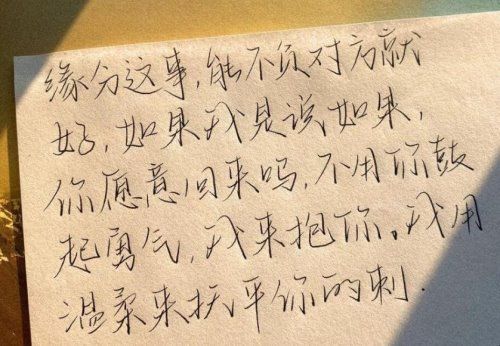 缘分这事,能不负对方就
好,如果我是说如果,
你愿意回来吗,不用你鼓
起勇气,我来抱你。我用
温柔来抚平你的刺.